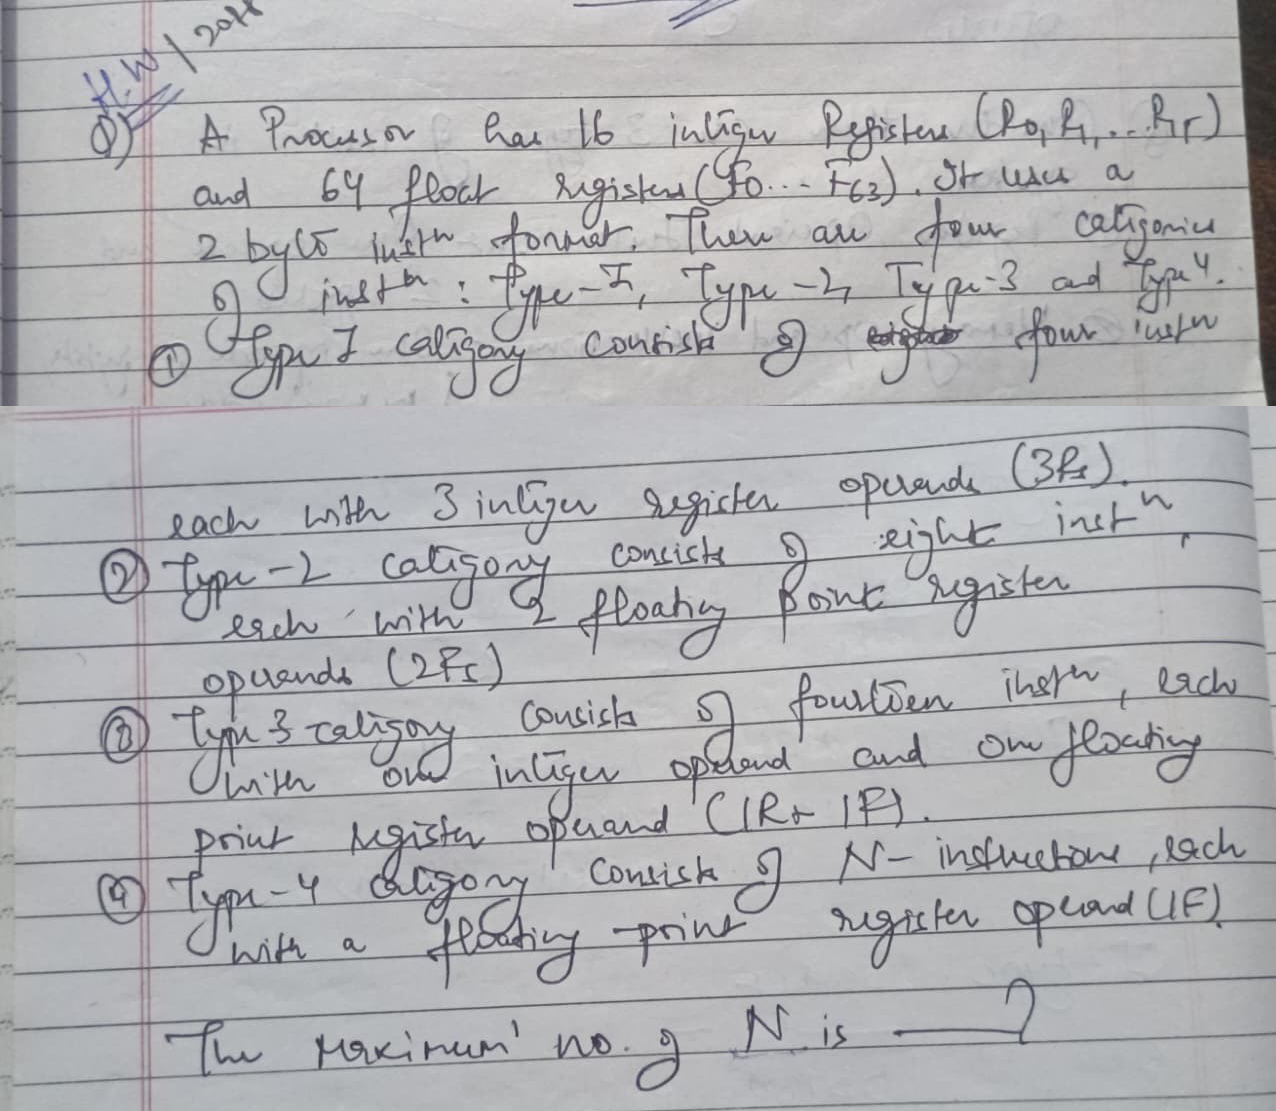 H.W / 201
Q) A Processor has 16 integer Registers (R0, R1, ... R15)
and 64 float registers (F0... F63). It uses a
2 byte instn format. There are four categories
of instn : Type-I, Type-2, Type-3 and Type 4.
① Type I category consists of four instn
each with 3 integer register operands (3Rs).
② Type-2 category consists of eight instn,
each with 2 floating point register
operands (2Fs)
③ Type 3 category consists of fourteen instn, each
with one integer operand and one floating
point register operand (1R+ 1F).
④ Type-4 category consists of N- instructions, each
with a floating-point register operand (1F).
The maximum no. of N is ——?